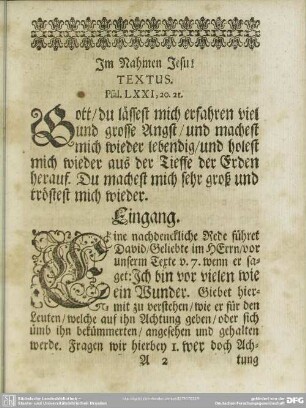 Im Nahmen Jesu!
TEXTUS.
Psal. LXXI, 20. 21.
Gott/ du lässest mich erfahren viel
und grosse Angst/ und machest
mich wieder lebendig/ und holest
mich wieder aus der Tieffe der Erden
herauf. Du machest mich sehr groß und
tröstest mich wieder.
Eingang.
Eine nachdenckliche Rede führet
David/ Geliebte im HErrn/ vor
unserm Texte v. 7. wenn er sa-
get: Ich bin vor vielen wie
ein Wunder. Giebet hier-
mit zu verstehen/ wie er für den
Leuten/ welche auf ihn Achtung geben/ oder sich
umb ihn bekümmerten/ angesehen und gehalten
werde. Fragen wir hierbey 1. wer doch Ach-
A 2 tung